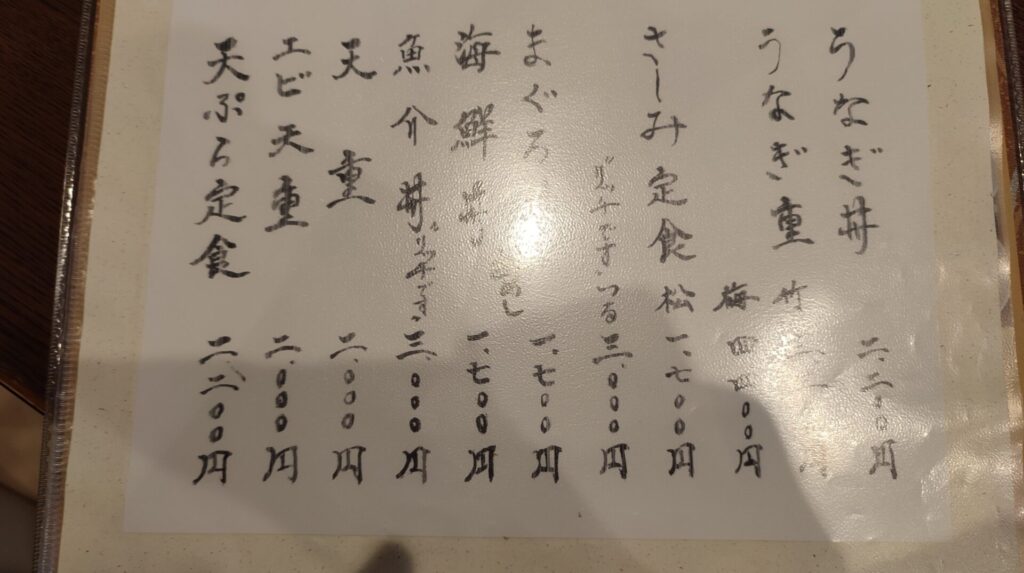 うなぎ丼 二、二〇〇円
うなぎ重 竹
梅 四、四〇〇円
さしみ定食 松 一、七〇〇円
三、〇〇〇円
まぐろ 一、七〇〇円
海鮮丼 一、七〇〇円
魚介丼 三、〇〇〇円
天重 二、〇〇〇円
エビ天重 二、〇〇〇円
天ぷら定食 二、二〇〇円